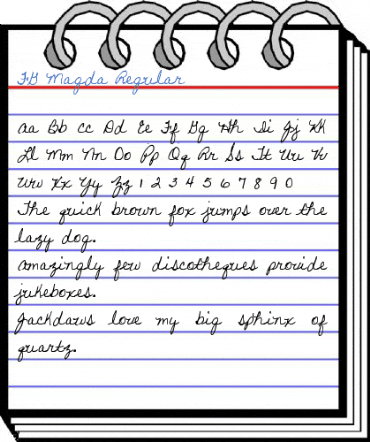 FG Magda Regular
aa Bb cc Dd Ee Ff Gg Hh Ii Jj Kk
Ll Mm Nn Oo Pp Qq Rr Ss Tt Uu Vv
Ww Xx Yy Zz 1 2 3 4 5 6 7 8 9 0
The quick brown fox jumps over the
lazy dog.
amazingly few discotheques provide
jukeboxes.
Jackdaws love my big sphinx of
quartz.